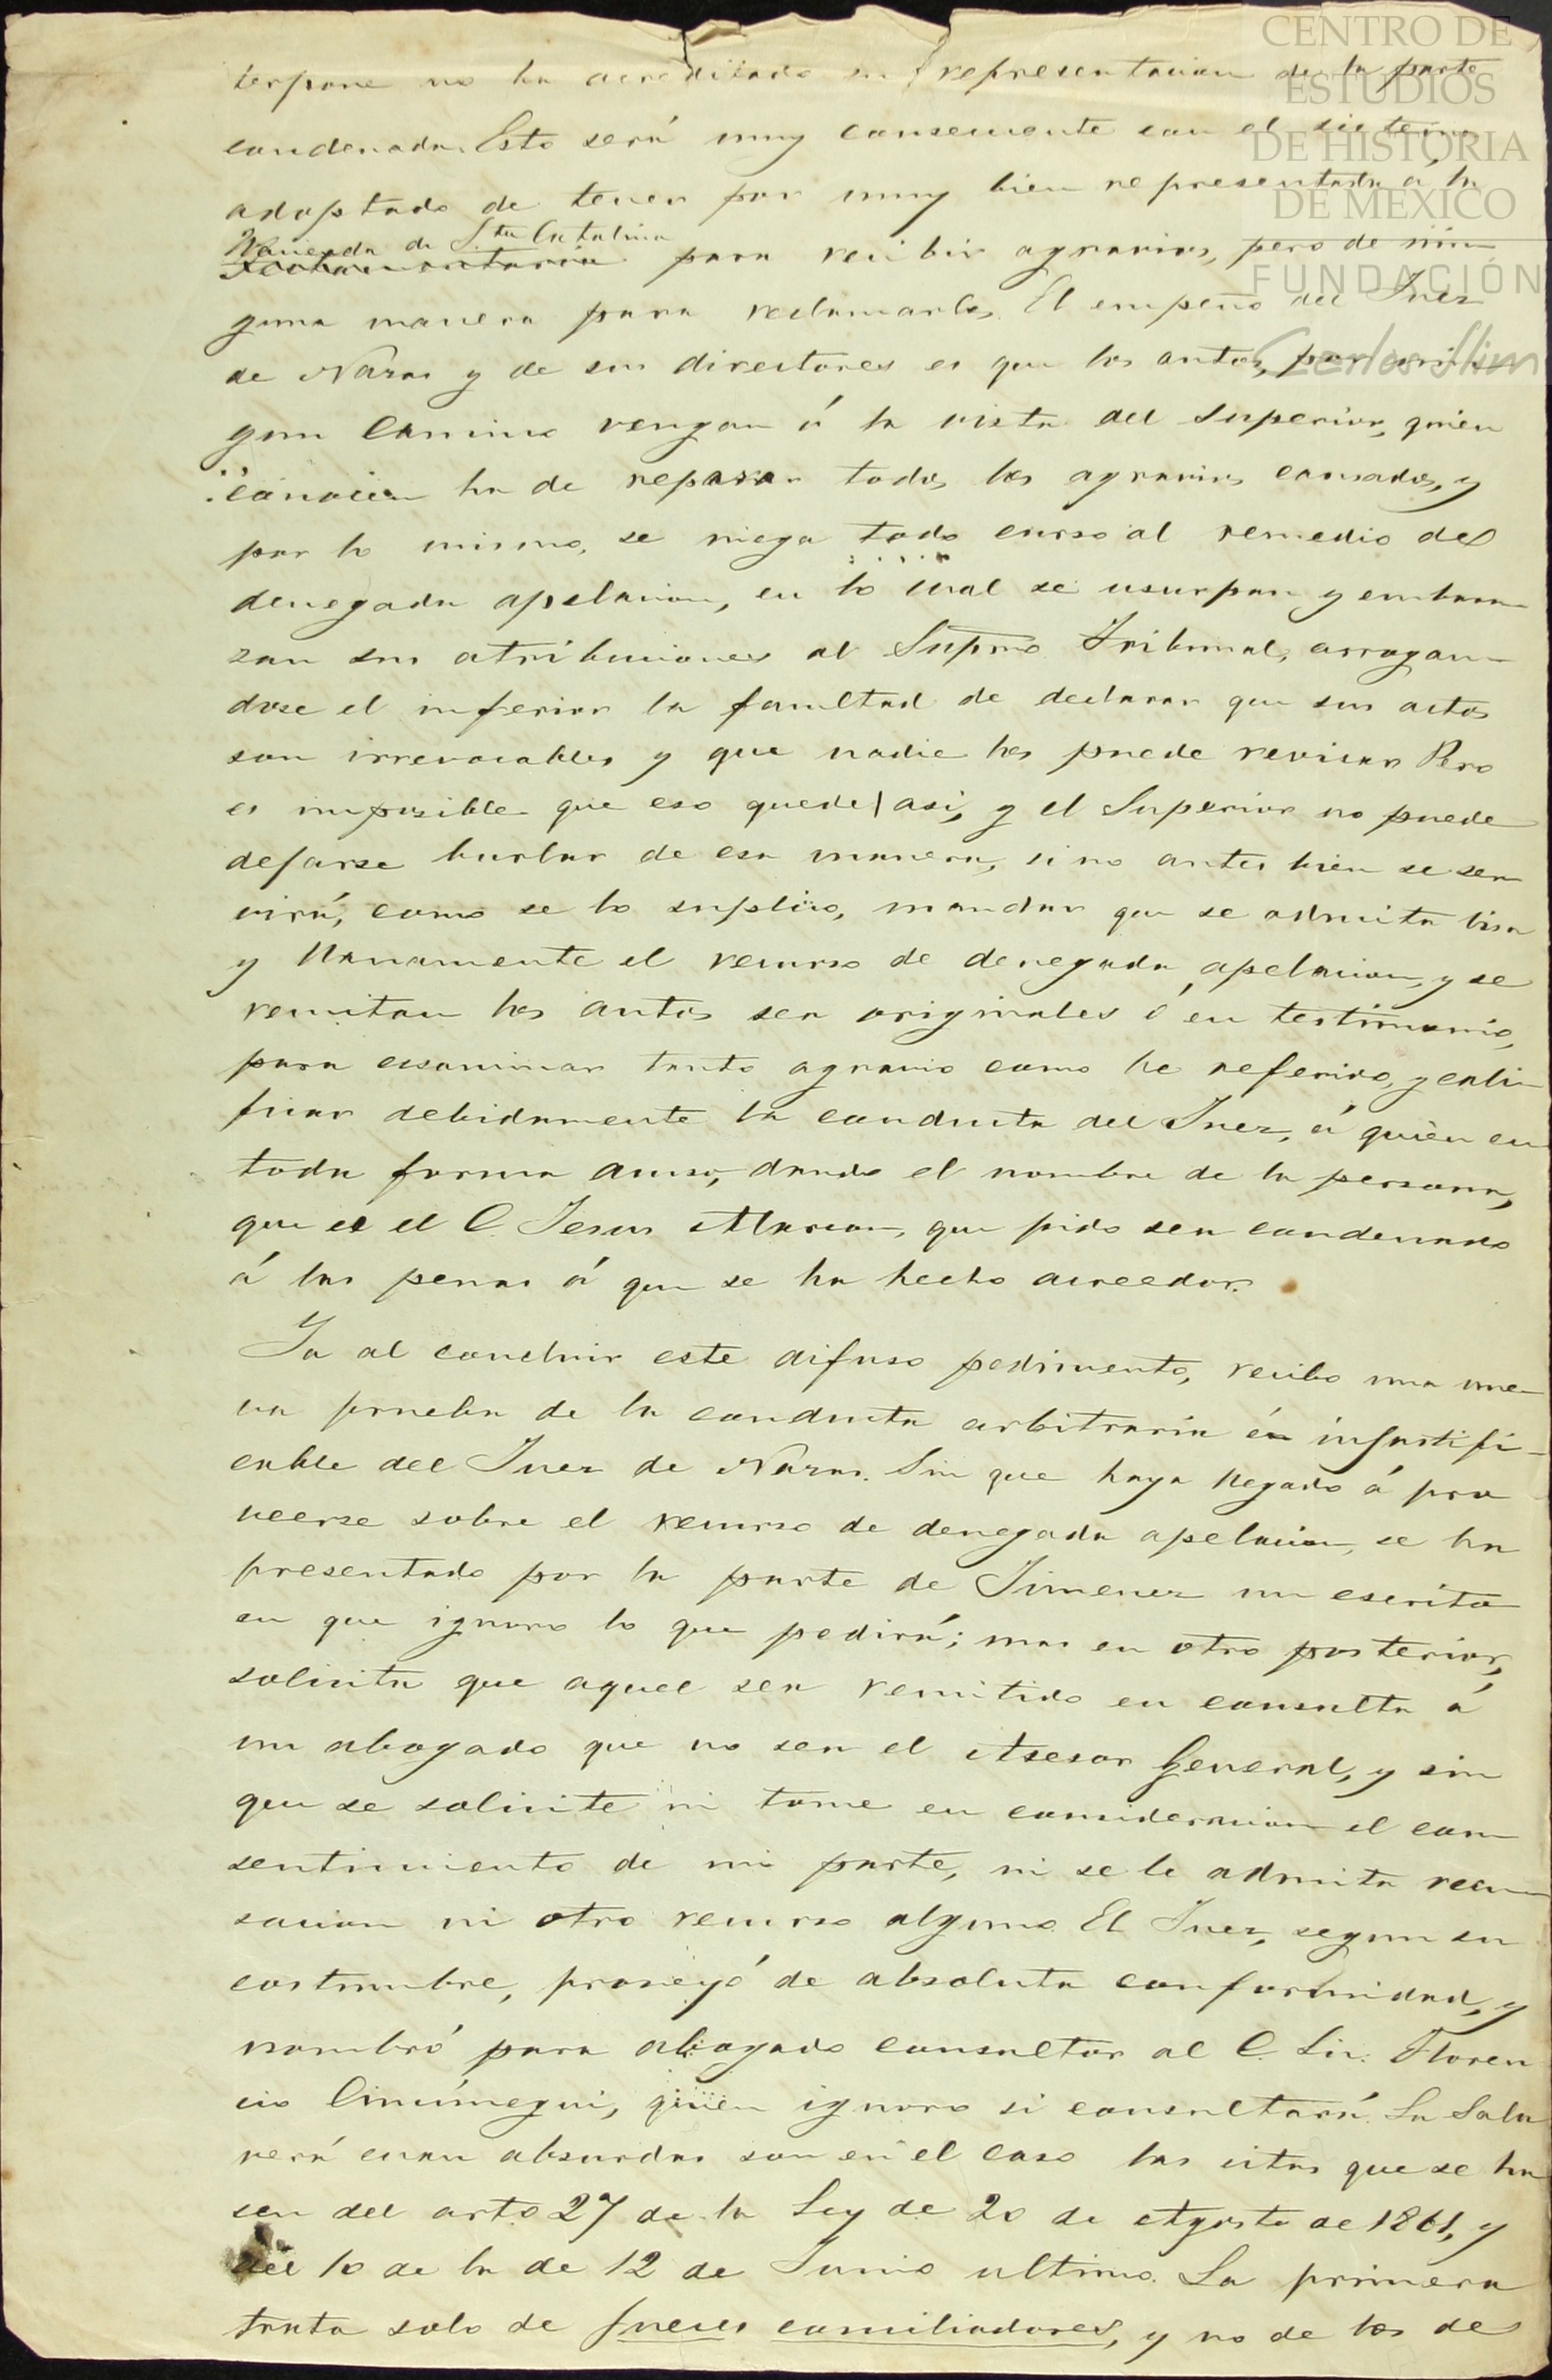 CENTRO DE
ESTUDIOS
DE HISTORIA
DE MEXICO
FUNDACIÓN
Carlos Slim
terpone no ha acreditado su representacion de la parte
condenada. Esto será muy consecuente con el sistema
adoptado de tener por muy bien representada á la
Hacienda de Sta Catalina
Testamentaria para recibir agravios, pero de nin
guna manera para reclamarlos. El empeño del Juez
de Nazas y de sus directores es que los autos, por
gun camino vengan á la vista del Superior, quien
ha de reparar todos los agravios causados, y
por lo mismo, se niega todo curso al remedio de
denegada apelacion, en lo cual se usurpan y embara
zan sus atribuciones al Supmo Tribunal, arrogan
dose el inferior la facultad de declarar que sus actos
son irrevocables y que nadie los puede revisar Pero
es imposible que eso quede asi, y el Superior no puede
dejarse burlar de esa manera, si no antes bien se ser
virá, como se lo suplico, mandar que se admita lisa
y llanamente el recurso de denegada apelacion, y se
remitan los autos sea originales ó en testimonio,
para ecsaminar tanto agravio como he referido, y cali
ficar debidamente la conducta del Juez, á quien en
toda forma acuso, dando el nombre de la persona,
que es el C. Jesus Alarcon, que pido sea condenado
á las penas á que se ha hecho acreedor.
Ya al concluir este difuso pedimento, recibo una nue
va prueba de la conducta arbitraria é injustifi-
cable del Juez de Nazas. Sin que haya llegado á pro
veerse sobre el recurso de denegada apelacion, se ha
presentado por la parte de Jimenez un escrito
en que ignoro lo que pedirá; mas en otro posterior,
solicita que aquel sea remitido en consulta á
un abogado que no sea el Asesor General, y sin
que se solicite ni tome en consideracion el con
sentimiento de mi parte, ni se le admita recu
sacion ni otro recurso alguno. El Juez, segun su
costumbre, proveyó de absoluta conformidad, y
nombró para abogado consultor al C. Lic. Floren
cio quien ignoro si consultará. La Sala
verá cuan absurdas son en el caso las citas que se ha
cen del arto 27 de la Ley de 20 de Agosto de 1861, y
del 10 de la de 12 de Junio ultimo. La primera
trata solo de jueces conciliadores, y no de los de